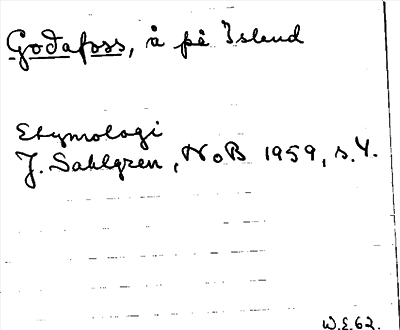 Goðafoss, å på Island
Etymologi
J. Sahlgren, NoB 1959, s. 4.
W.E.62.